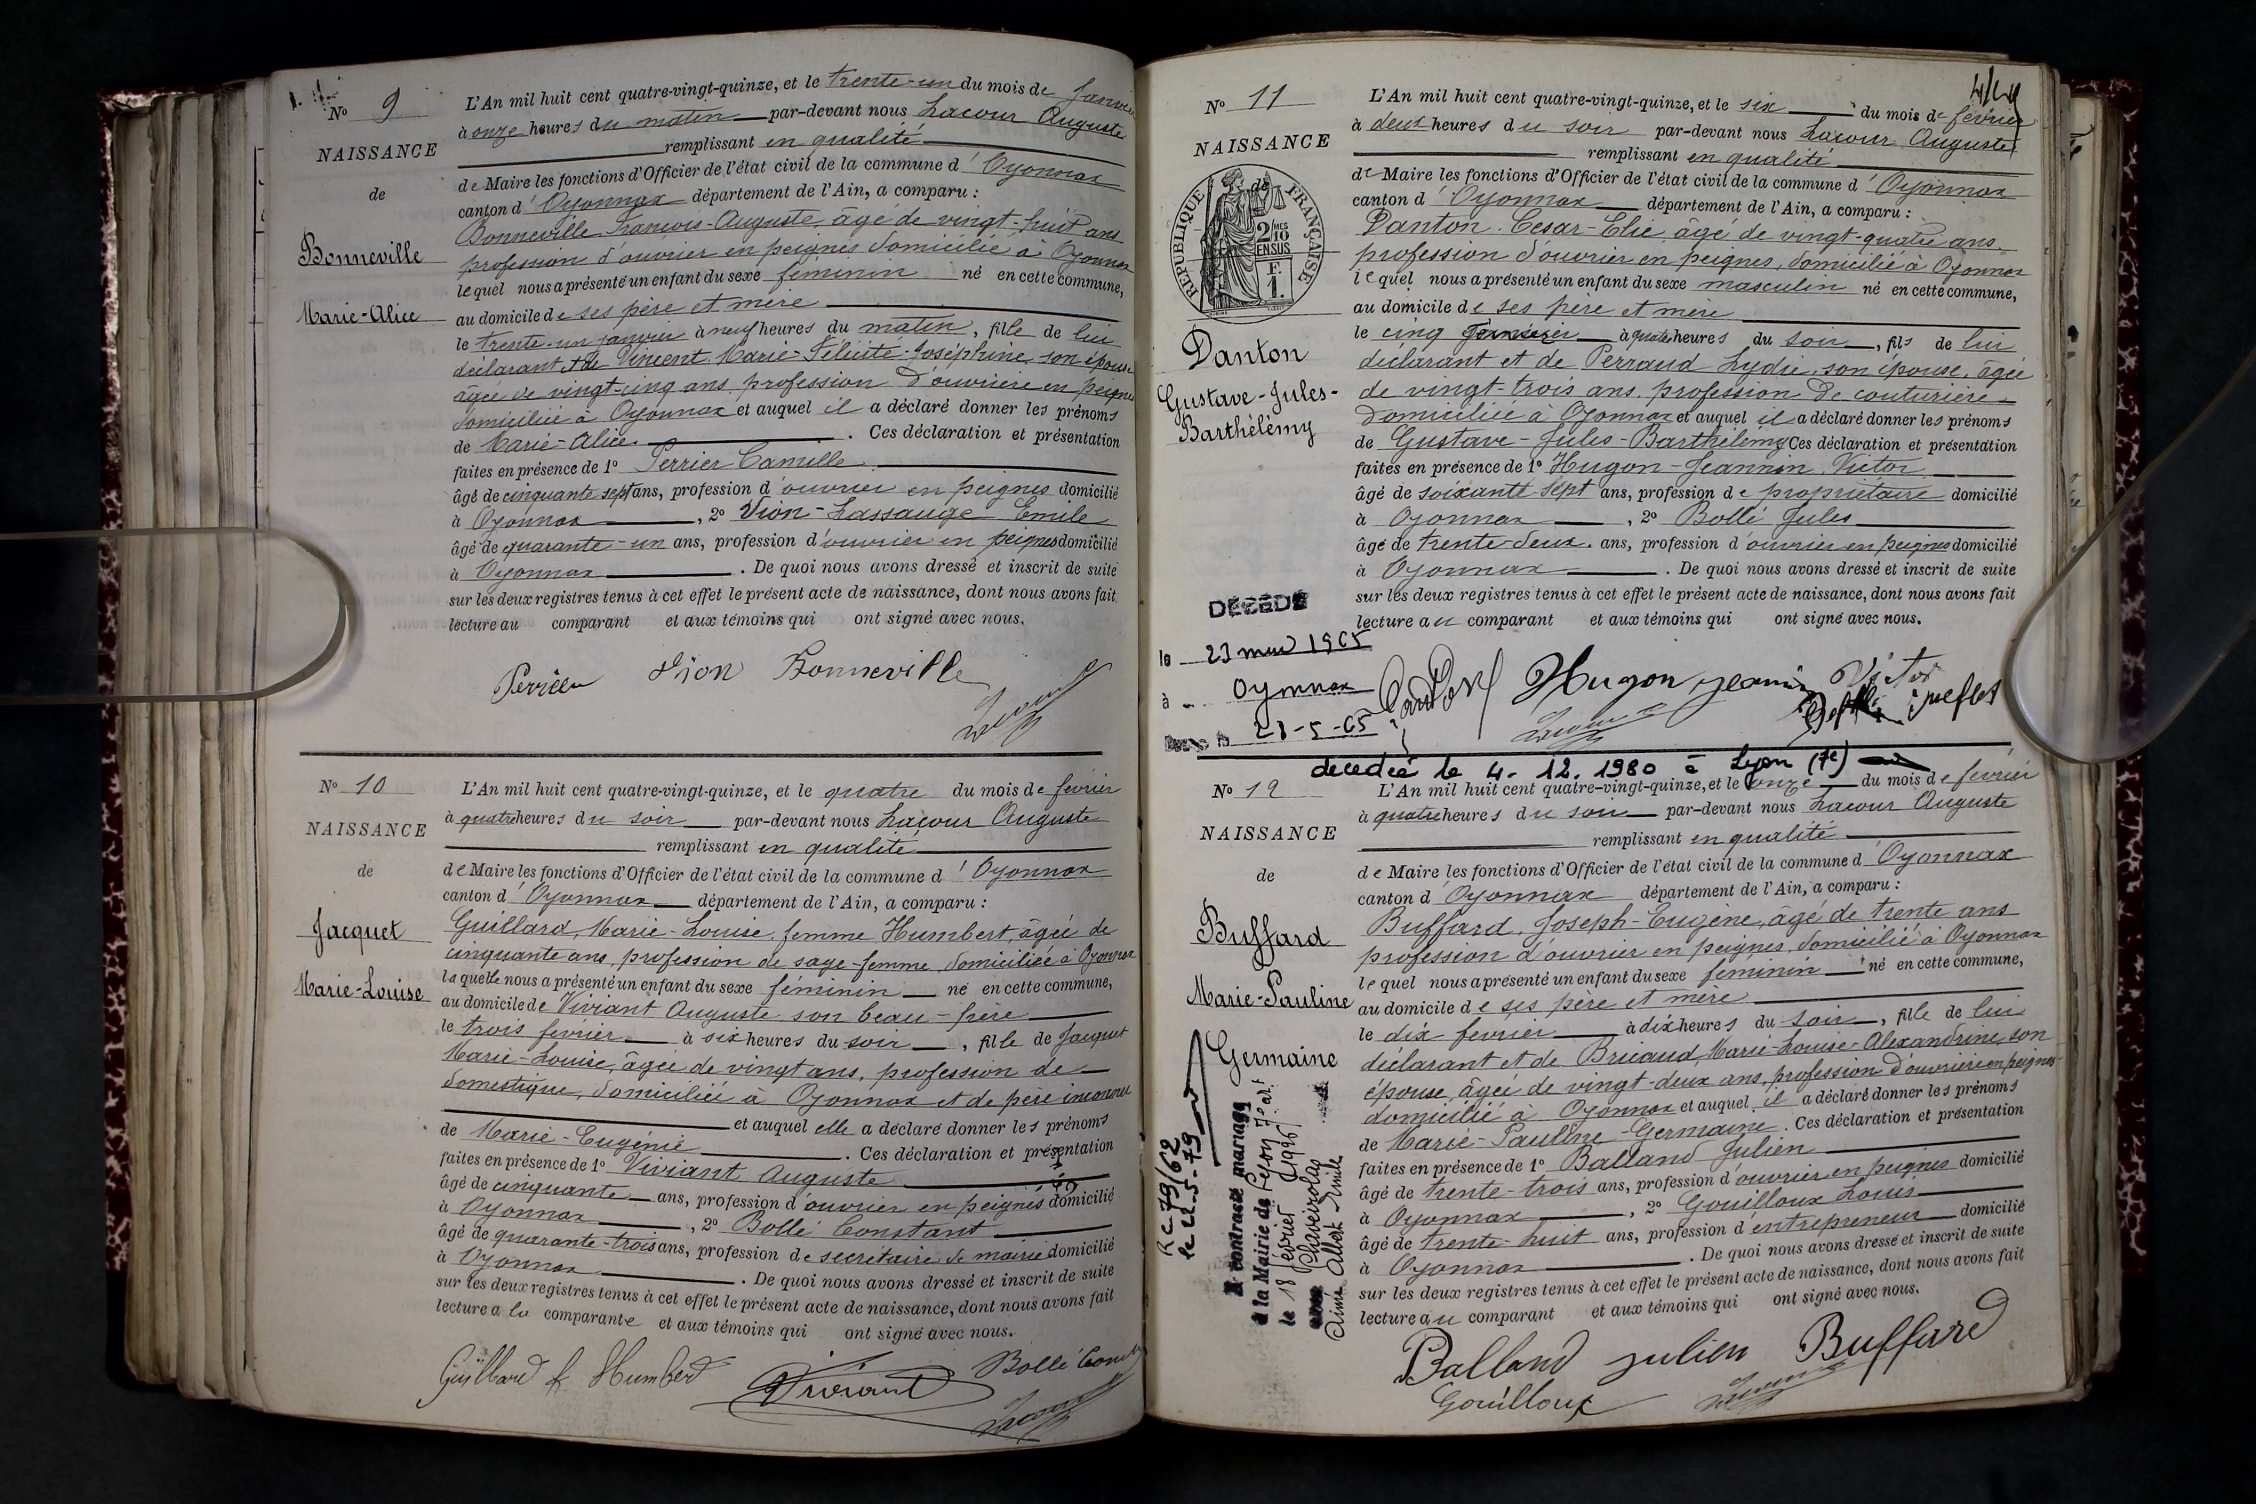 N° 9
NAISSANCE
de
Bonneville
Marie-Alice
L'An mil huit cent quatre-vingt-quinze, et le trente-un du mois de Janvier
à onze heures du matin par-devant nous Lacour Auguste
remplissant en qualité
de Maire les fonctions d'Officier de l'état civil de la commune d'Oyonnax
canton d'Oyonnax département de l'Ain, a comparu :
Bonneville François-Auguste, âgé de vingt-huit ans
profession d'ouvrier en peignes domicilié à Oyonnax
lequel nous a présenté un enfant du sexe féminin né en cette commune,
au domicile de ses père et mère
le trente-un janvier à neuf heures du matin, fille de lui
déclarant et de Vincent Marie-Félicité-Joséphine son épouse
âgée de vingt-cinq ans profession d'ouvrière en peignes
domiciliée à Oyonnax et auquel il a déclaré donner les prénoms
de Marie-Alice. Ces déclaration et présentation
faites en présence de 1° Perrier Camille
âgé de cinquante sept ans, profession d'ouvrier en peignes domicilié
à Oyonnax, 2° Vion-Lassauge Emile
âgé de quarante-un ans, profession d'ouvrier en peignes domicilié
à Oyonnax. De quoi nous avons dressé et inscrit de suite
sur les deux registres tenus à cet effet le présent acte de naissance, dont nous avons fait
lecture au comparant et aux témoins qui ont signé avec nous.
Perrier Vion Bonneville
Lacour
N° 10
NAISSANCE
de
Jacquet
Marie-Louise
L'An mil huit cent quatre-vingt-quinze, et le quatre du mois de février
à quatre heures du soir par-devant nous Lacour Auguste
remplissant en qualité
de Maire les fonctions d'Officier de l'état civil de la commune d'Oyonnax
canton d'Oyonnax département de l'Ain, a comparu :
Guillard, Marie-Louise, femme Humbert, âgée de
cinquante ans, profession de sage-femme, domiciliée à Oyonnax
laquelle nous a présenté un enfant du sexe féminin né en cette commune,
au domicile de Viviant Auguste son beau-frère
le trois fevrier à six heures du soir, fille de Jacquet
Marie-Louise, âgée de vingt ans, profession de
domestique, domiciliée à Oyonnax et de père inconnu
et auquel elle a déclaré donner les prénoms
de Marie-Eugénie. Ces déclaration et présentation
faites en présence de 1° Viviant Auguste
âgé de cinquante ans, profession d'ouvrier en peignes domicilié
à Oyonnax, 2° Bollé Constant
âgé de quarante-trois ans, profession de secrétaire de mairie domicilié
à Oyonnax. De quoi nous avons dressé et inscrit de suite
sur les deux registres tenus à cet effet le présent acte de naissance, dont nous avons fait
lecture a la comparante et aux témoins qui ont signé avec nous.
Guillard f. Humbert Viviant Bollé Const
Lacour
N° 11
NAISSANCE
de
RÉPUBLIQUE FRANÇAISE
2/10 MES
EN SUS
F.
1.
Danton
Gustave-Jules-
Barthélemy
DÉCÉDÉ
le 23 mai 1965
à Oyonnax
le 28-5-65
L'An mil huit cent quatre-vingt-quinze, et le six du mois de février
à deux heures du soir par-devant nous Lacour Auguste
remplissant en qualité
de Maire les fonctions d'Officier de l'état civil de la commune d'Oyonnax
canton d'Oyonnax département de l'Ain, a comparu :
Danton, César-Elie, âgé de vingt-quatre ans
profession d'ouvrier en peignes, domicilié à Oyonnax
lequel nous a présenté un enfant du sexe masculin né en cette commune,
au domicile de ses père et mère
le cinq à quatre heures du soir, fils de lui
déclarant et de Perraud Lydie, son épouse, âgée
de vingt-trois ans, profession de couturière
domiciliée à Oyonnax et auquel il a déclaré donner les prénoms
de Gustave-Jules-Barthélemy Ces déclaration et présentation
faites en présence de 1° Hugon-Jeannin Victor
âgé de soixante sept ans, profession de propriétaire domicilié
à Oyonnax, 2° Bollé Jules
âgé de trente-deux ans, profession d'ouvrier en peignes domicilié
à Oyonnax. De quoi nous avons dressé et inscrit de suite
sur les deux registres tenus à cet effet le présent acte de naissance, dont nous avons fait
lecture au comparant et aux témoins qui ont signé avec nous.
Danton Hugon Jeannin Victor
Lacour
décédée le 4. 12. 1980 à Lyon (7e)
N° 12
NAISSANCE
de
Buffard
Marie-Pauline
Germaine
RC 79/62
le 22.5.79
A contracté mariage
à la Mairie de Lyon 7e art
le 18 février 1926
avec Chaveirolas
Aimé Albert Emile
L'An mil huit cent quatre-vingt-quinze, et le onze du mois de fevrier
à quatre heures du soir par-devant nous Lacour Auguste
remplissant en qualité
de Maire les fonctions d'Officier de l'état civil de la commune d'Oyonnax
canton d'Oyonnax département de l'Ain, a comparu :
Buffard, Joseph-Eugène, âgé de trente ans
profession d'ouvrier en peignes, domicilié à Oyonnax
lequel nous a présenté un enfant du sexe féminin né en cette commune,
au domicile de ses père et mère
le dix fevrier à dix heures du soir, fille de lui
déclarant et de Bricaud Marie-Louise-Alexandrine, son
épouse, âgée de vingt-deux ans, profession d'ouvrière en peignes
domicilié à Oyonnax et auquel il a déclaré donner les prénoms
de Marie-Pauline-Germaine. Ces déclaration et présentation
faites en présence de 1° Balland Julien
âgé de trente-trois ans, profession d'ouvrier en peignes domicilié
à Oyonnax, 2° Gouilloux Louis
âgé de trente-huit ans, profession d'entrepreneur domicilié
à Oyonnax. De quoi nous avons dressé et inscrit de suite
sur les deux registres tenus à cet effet le présent acte de naissance, dont nous avons fait
lecture au comparant et aux témoins qui ont signé avec nous.
Balland Julien Buffard
Gouilloux Lacour